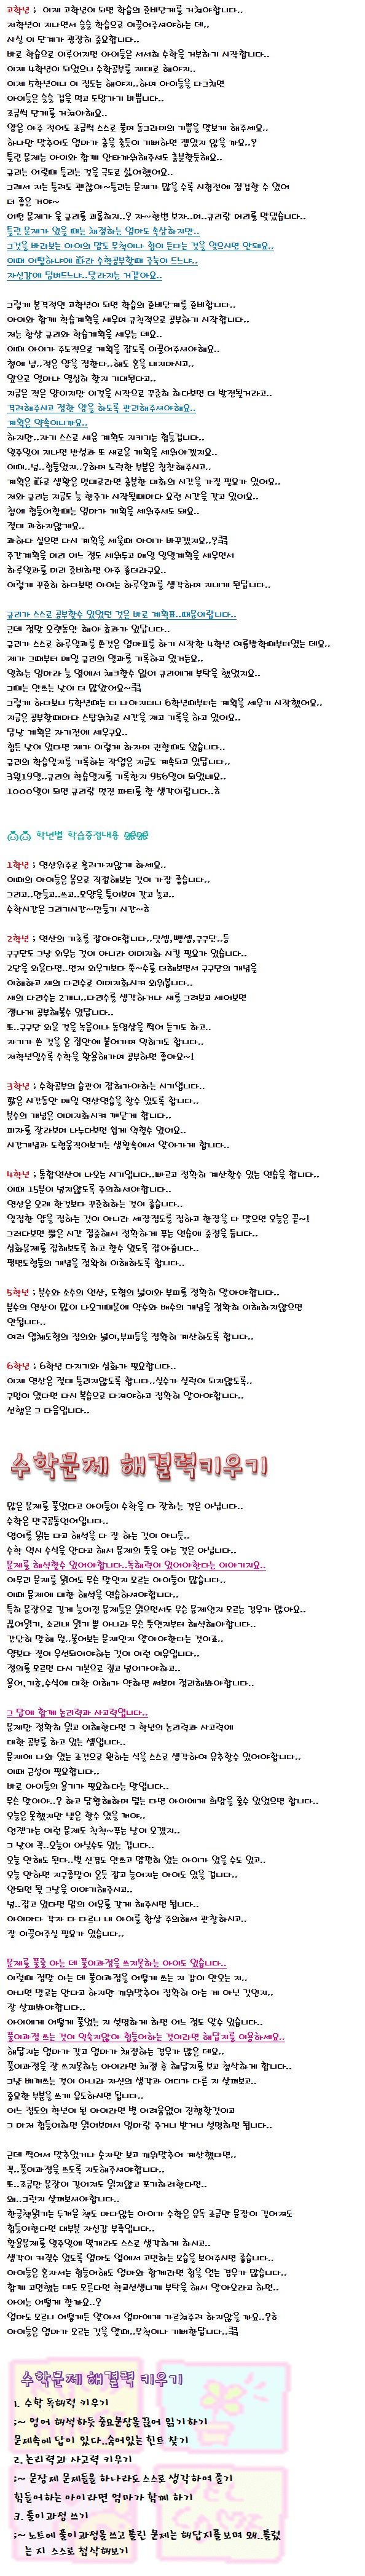 고학년 ; 이제 고학년이 되면 학습의 준비단계를 거쳐야합니다..
저학년이 지나면서 슬슬 학습으로 이끌어주셔야하는 데..
사실 이 단계가 굉장히 중요합니다..
바로 학습으로 이루어지면 아이들은 서서히 수학을 거부하기 시작합니다..
이제 4학년이 되었으니 수학공부를 제대로 해야지..
이제 5학년이니 이 정도는 해야지..하며 아이들을 다그치면
아이들은 슬슬 겁을 먹고 도망가기 바쁩니다..
조금씩 단계를 거쳐야해요..
양은 아주 적어도 조금씩 스스로 풀며 동그라미의 기쁨을 맛보게 해주세요..
하나만 맞추어도 엄마가 춤을 출듯이 기뻐하면 잼있지 않을 까요..?
틀린 문제는 아이와 함께 안타까워해주셔도 충분할듯해요..
규리는 어릴때 틀리는 것을 극도로 싫어했어요..
그래서 저는 틀려도 괜찮아~틀리는 문제가 많을수록 시험전에 점검할 수 있어
더 좋은 거야~
어떤 문제가 울 규리를 괴롭히지..? 자~한번 보자..며..규리랑 머리를 맞댔습니다..
틀린 문제가 있을 때는 채점하는 엄마도 속상하지만..
그것을 바라보는 아이의 맘도 무척이나 힘이 든다는 것을 잊으시면 안돼요..
이때 어떻하냐에 따라 수학공부할때 주눅이 드느냐..
자신감에 넘벼드느냐..달라지는 거같아요..

그렇게 본격적인 고학년이 되면 학습의 준비단계를 준비합니다..
아이와 함께 학습계획을 세우며 규칙적으로 공부하기 시작합니다..
저는 항상 규리와 학습계획을 세우는 데요..
이때 아이가 주도적으로 계획을 잡도록 이끌어주셔야해요..
첨에 넘..작은 양을 정한다..해도 혼을 내지마시고..
앞으로 얼마나 열심히 할지 기대된다고..
지금은 작은 양이지만 이것을 시작으로 꾸준히 하다보면 더 발전될거라고..
격려해주시고 정한 양을 하도록 관리해주셔야해요..
계획은 약속이니까요..
하지만..자기 스스로 세운 계획도 지키기는 힘들겁니다..
일주일이 지나면 반성과 또 새로운 계획을 세워야겠지요..
이때..넘..힘들었지..?하며 노력한 부분은 칭찬해주시고..
계획은 따로 생활은 멋대로라면 충분한 대화의 시간을 가질 필요가 있어요..
저와 규리는 지금도 늘 한주가 시작될때마다 요런 시간을 갖고 있어요..
첨에 힘들어할때는 엄마가 계획을 세워주셔도 돼요..
절대 과하지않게요..
과하다 싶으면 다시 계획을 세울때 아이가 바꾸겠지요..?ㅋㅋ
주간계획을 미리 어느 정도 세워두고 매일 일일계획을 세우면서
하루일과를 미리 준비하면 아주 좋더라구요..
이렇게 꾸준히 하다보면 아이는 하루일과를 생각하며 지내게 된답니다..

규리가 스스로 공부할수 있었던 것은 바로 계획표..때문이랍니다..
근데 정말 오랫동안 해야 효과가 있답니다..
규리가 스스로 하루일과를 쓴것은 엄마표를 하기 시작한 4학년 여름방학때부터였는 데요..
제가 그때부터 매일 규리의 일과를 기록하고 있거든요..
일하는 엄마라 늘 옆에서 체크할수 없어 규리에게 부탁을 했었지요..
그때는 안쓰는 날이 더 많았어요~ㅋㅋ
그렇게 하다보니 5학년때는 더 나아지더니 6학년때부터는 계획을 세우기 시작했어요..
지금은 공부할때마다 스탑워치로 시간을 재고 기록을 하고 있어요..
담날 계획은 자기전에 세우구요..
힘든 날이 있다면 제가 이렇게 하자며 권할때도 있습니다..
규리의 학습일지를 기록하는 작업은 지금도 계속되고 있답니다..
3월19일..규리의 학습일지를 기록한지 956일이 되었네요..
1000일이 되면 규리랑 멋진 파티를 할 생각이랍니다..ㅎ

학년별 학습중점내용

1학년 ; 연산위주로 흘러가지않게 하세요..
이때의 아이들은 몸으로 직접해보는 것이 가장 좋습니다..
그리고..만들고..쓰고..모양을 뜯어보며 갖고 놀고..
수학시간은 그리기시간~만들기 시간~ㅎ

2학년 ; 연산의 기초를 잡아야합니다..덧셈,뺄셈,구구단..등
구구단도 그냥 외우는 것이 아니라 이미지화 시킬 필요가 있습니다..
2단을 외운다면..먼저 외우기보다 쭉~수를 더해보면서 구구단의 개념을
이해하고 새의 다리수로 이미지화시켜 외워봅니다..
새의 다리수는 2개니..다리수를 생각하거나 새를 그려보고 세어보면
잼나게 공부해볼수 있답니다..
또..구구단 외운 것을 녹음이나 동영상을 찍어 듣기도 하고..
자기가 쓴 것을 온 집안에 붙여가며 익히기도 합니다..
저학년일수록 수학을 활용해가며 공부하면 좋아요~!

3학년 ; 수학공부의 습관이 잡혀가야하는 시기입니다..
짧은 시간동안 매일 연산연습을 할수 있도록 합니다..
분수의 개념을 이미지화시켜 깨닫게 합니다..
피자를 잘라보며 나누다보면 쉽게 익힐수 있어요..
시간개념과 도형움직여보기는 생활속에서 알아가게 합니다..

4학년 ; 통합연산이 나오는 시기입니다..빠르고 정확히 계산할수 있는 연습을 합니다..
이때 15분이 넘지않도록 주의하셔야합니다..
연산은 오래 한것보다 꾸준히하는 것이 좋습니다..
일정한 양을 정하는 것이 아니라 세장정도를 정하고 한장을 다 맞으면 오늘은 끝~!
그러다보면 짧은 시간 집중해서 정확하게 푸는 연습에 중점을 둡니다..
심화문제를 접해보도록 하고 할수 있도록 잡아줍니다..
평면도형들의 개념을 정확히 이해하도록 합니다..

5학년 ; 분수와 소수의 연산, 도형의 넓이와 부피를 정확히 알아야합니다..
분수의 연산이 많이 나오기때문에 약수와 배수의 개념을 정확히 이해하지않으면
안됩니다..
여러 입체도형의 정의와 넓이,부피들을 정확히 계산하도록 합니다..

6학년 ; 6학년 다지기와 심화가 필요합니다..
이제 연산은 절대 틀리지않도록 합니다..실수가 실력이 되지않도록..
구멍이 있다면 다시 복습으로 다져야하고 정확히 알아야합니다..
선행은 그 다음입니다..

수학문제 해결력키우기

많은 문제를 풀었다고 아이들이 수학을 다 잘하는 것은 아닙니다..
수학은 만국공통언어입니다..
영어를 읽는 다고 해석을 다 잘 하는 것이 아니듯..
수학 역시 수식을 안다고 해서 문제의 뜻을 아는 것은 아닙니다..
문제를 해석할수 있어야합니다..독해력이 있어야한다는 이야기지요..
아무리 문제를 읽어도 무슨 말인지 모르는 아이들이 많습니다..
이때 문제에 대한 해석을 연습하셔야합니다..
특히 문장으로 길게 늘어진 문제들은 읽으면서도 무슨 문제인지 모르는 경우가 많아요..
끊어읽기, 소리내 읽기 뿐 아니라 무슨 뜻인지부터 해석해야합니다..
간단히 말해 뭘..물어보는 문제인지 알아야한다는 것이죠..
양보다 질이 우선되어야하는 것이 이런 이유입니다..
정의를 모르면 다시 기본으로 짚고 넘어가야하고..
용어,기호,수식에 대한 이해가 약하면 써보며 정리해봐야합니다..

그 담에 함께 논리력과 사고력입니다..
문제만 정확히 읽고 이해한다면 그 학년의 논리력과 사고력에
대한 공부를 하고 있는 셈입니다..
문제에 나와 있는 조건으로 원하는 식을 스스로 생각하여 유추할수 있어야합니다..
이때 근성이 필요합니다..
바로 아이들의 용기가 필요하다는 말입니다..
무슨 말이야..? 하고 당황해하며 덮는 다면 아이에게 희망을 줄수 있었으면 합니다..
오늘은 못했지만 낼은 할수 있을 거야..
언젠가는 이런 문제도 척척~푸는 날이 오겠지..
그 날이 꼭..오늘이 아닐수도 있는 겁니다..
오늘 안해도 된다..별 신경도 안쓰고 맘편히 있는 아이가 있을 수도 있고..
오늘 안하면 지구종말이 온듯 잡고 늘어지는 아이도 있을 겁니다..
안되면 될 그날을 이야기해주시고..
넘..잡고 있다면 맘의 여유를 갖게 해주시면 됩니다..
아이마다 각자 다 다르니 내 아이를 항상 주의해서 관찰하시고..
잘 이끌어주실 필요가 있습니다..

문제를 풀줄 아는 데 풀이과정을 쓰지못하는 아이도 있습니다..
이럴때 정말 아는 데 풀이과정을 어떻게 쓰는 지 감이 안오는 지..
아니면 말로는 안다고 하지만 끼워맞추어 정확히 아는 게 아닌 것인지..
잘 살펴봐야합니다..
아이에게 어떻게 풀었는 지 설명하게 하면 어느 정도 알수 있습니다..
풀이과정 쓰는 것이 익숙치않아 힘들어하는 것이라면 해답지를 이용하세요..
해답지는 엄마가 갖고 엄마가 채점하는 경우가 많은 데요..
풀이과정을 잘 쓰지못하는 아이라면 채점 후 해답지를 보고 첨삭하게 합니다..
그냥 베껴쓰는 것이 아니라 자신의 생각과 어디가 다른 지 살펴보고..
중요한 부분을 쓰게 유도하시면 됩니다..
어느 정도의 학년이 된 아이라면 별 어려움없이 진행할것이고
그 마저 힘들어하면 읽어보며서 엄마랑 주거니 받거니 설명하면 됩니다..

근데 찍어서 맞추었거나 숫자만 보고 끼워맞추어 계산했다면..
꼭..풀이과정을 쓰도록 지도해주셔야합니다..
또..조금만 문장이 길어져도 읽지않고 포기하려한다면..
왜..그런지 살펴보셔야합니다..
한글책읽기는 두꺼운 책도 마다않는 아이가 수학은 유독 조금만 문장이 길어져도
힘들어한다면 대부분 자신감 부족입니다..
활용문제를 일주일에 몇개라도 스스로 생각하게 하시고..
생각이 커질수 있도록 엄마도 옆에서 고민하는 모습을 보여주시면 좋습니다..
아이들은 혼자서는 힘들어해도 엄마와 함께라면 힘을 얻는 경우가 많습니다..
함께 고민했는 데도 모른다면 학교선생니께 부탁을 해서 알아오라고 하면..
아이는 어떻게 할까요..?
엄마도 모르니 어떻게든 알아서 엄마에게 가르쳐주려 하지않을 까요..?ㅎ
아이들은 엄마가 모르는 것을 알때..무척이나 기뻐한답니다..ㅋㅋ

수학문제 해결력 키우기
1. 수학 독해력 키우기
;~ 영어 해석하듯 중요문장을 끊어 읽기하기
문제속에 답이 있다..숨어있는 힌트 찾기
2. 논리력과 사고력 키우기
;~ 문장제 문제들을 하나라도 스스로 생각하여 풀기
힘들어하는 아이라면 엄마가 함께 하기
3. 풀이과정 쓰기
;~ 노트에 풀이과정을 쓰고 틀린 문제는 해답지를 보며 왜..틀렸
는 지 스스로 첨삭해보기